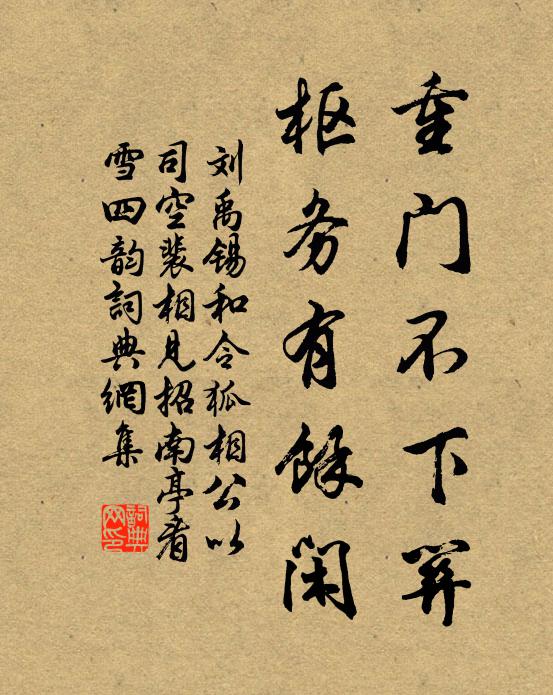 重门不下関
枢务有餘闲
刘禹锡和令狐相公以
司空裴相见招南亭看
雪四韵詞典網集
詞典网印